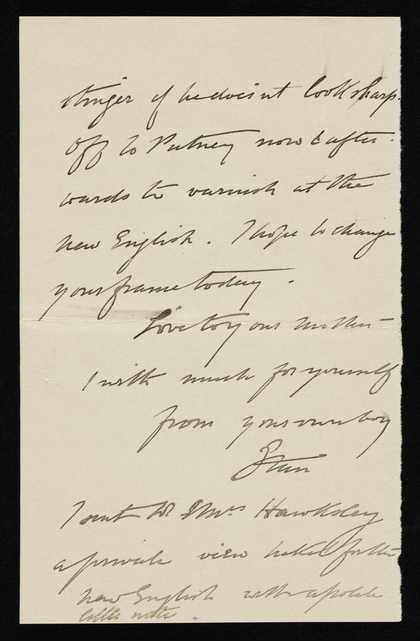 stinger if he doesn't look sharp.
Off to Putney now & after-
wards to varnish at the
New English. I hope to change
your frame today.
Love to your Mother
& with much for yourself
from your own boy
Stan
I sent Dr. & Mrs Hawksley
a private view ticket for the
New English with a polite
little note.